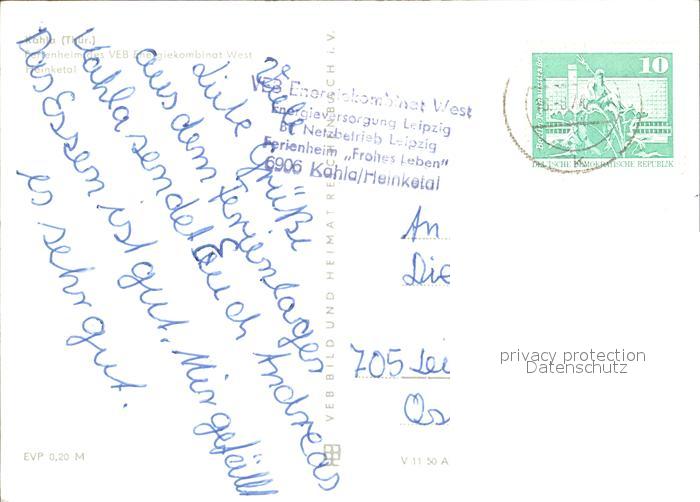 Kahla (Thür.)
Ferienheim des VEB Energiekombinat West
Heinketal
VEB Energiekombinat West
Energieversorgung Leipzig
BT Netzbetrieb Leipzig
Ferienheim „Frohes Leben"
6906 Kahla/Heinketal
Liebe Grüße
aus dem Ferienlager
Kahla sendet Euch Andreas
Das Essen ist gut. Mir gefällt
es sehr gut.
VEB BILD UND HEIMAT REICHENBACH i. V.
10
DEUTSCHE DEMOKRATISCHE REPUBLIK
An
Die
705 Lei
Os
privacy protection
Datenschutz
EVP 0,20 M
V 11 50 A